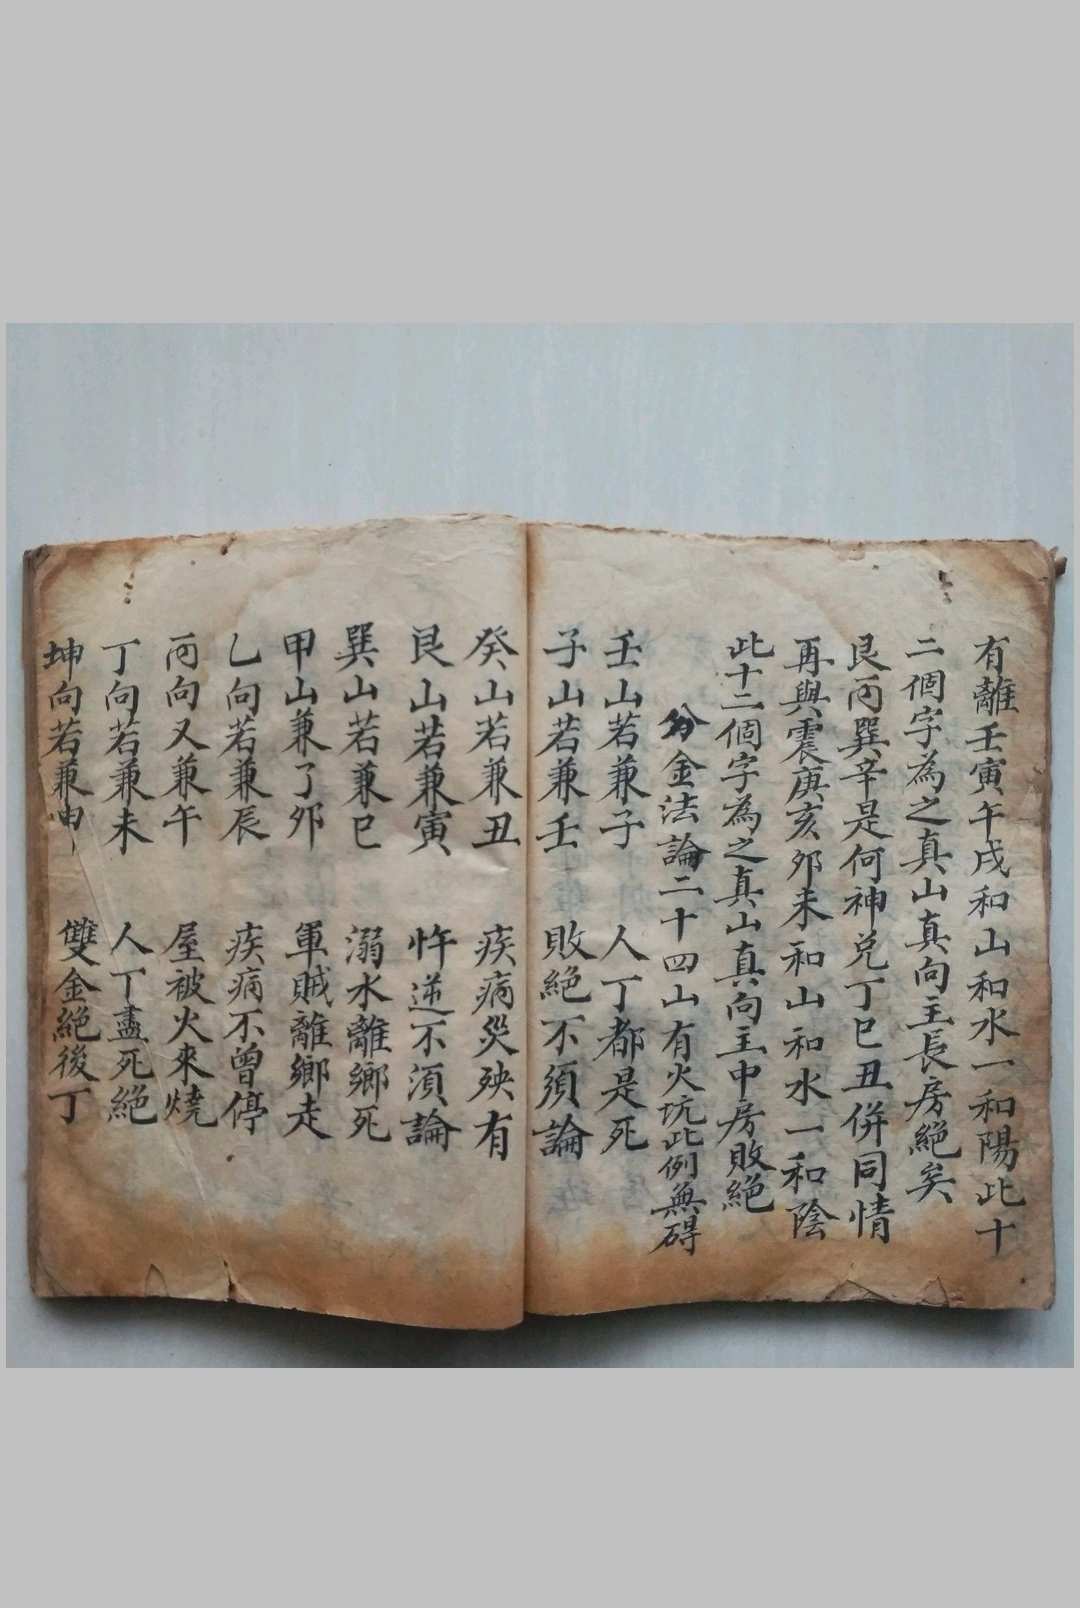 有離壬寅午戌和山和水一和陽此十
二個字為之真山真向主長房絕矣
艮丙巽辛是何神兌丁巳丑併同情
再與震庚亥卯未和山和水一和陰
此十二個字為之真山真向主中房敗絕
分金法論二十四山有火坑此例無碍
壬山若兼子 人丁都是死
子山若兼壬 敗絕不須論
癸山若兼丑 疾病災殃有
艮山若兼寅 忤逆不須論
巽山若兼巳 溺水離鄉死
甲山兼了卯 軍賊離鄉走
乙向若兼辰 疾病不曾停
丙向又兼午 屋被火來燒
丁向若兼未 人丁盡死絕
坤向若兼申 雙金絕後丁